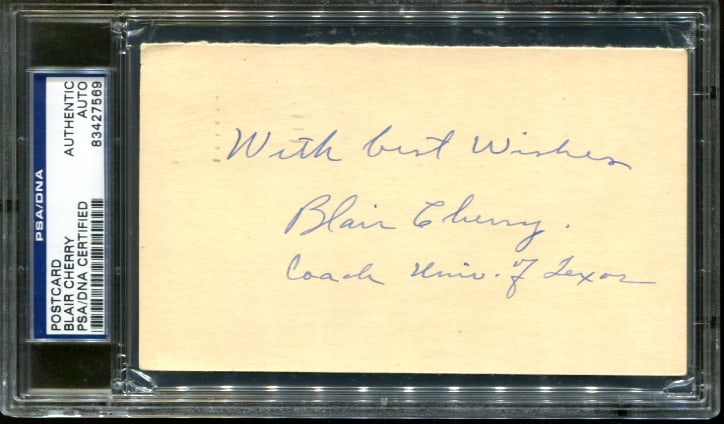 With best Wishes
Blair Cherry.
Coach Univ. of Texas
PSA/DNA
POSTCARD
BLAIR CHERRY
PSA/DNA CERTIFIED
AUTHENTIC
AUTO
83427569